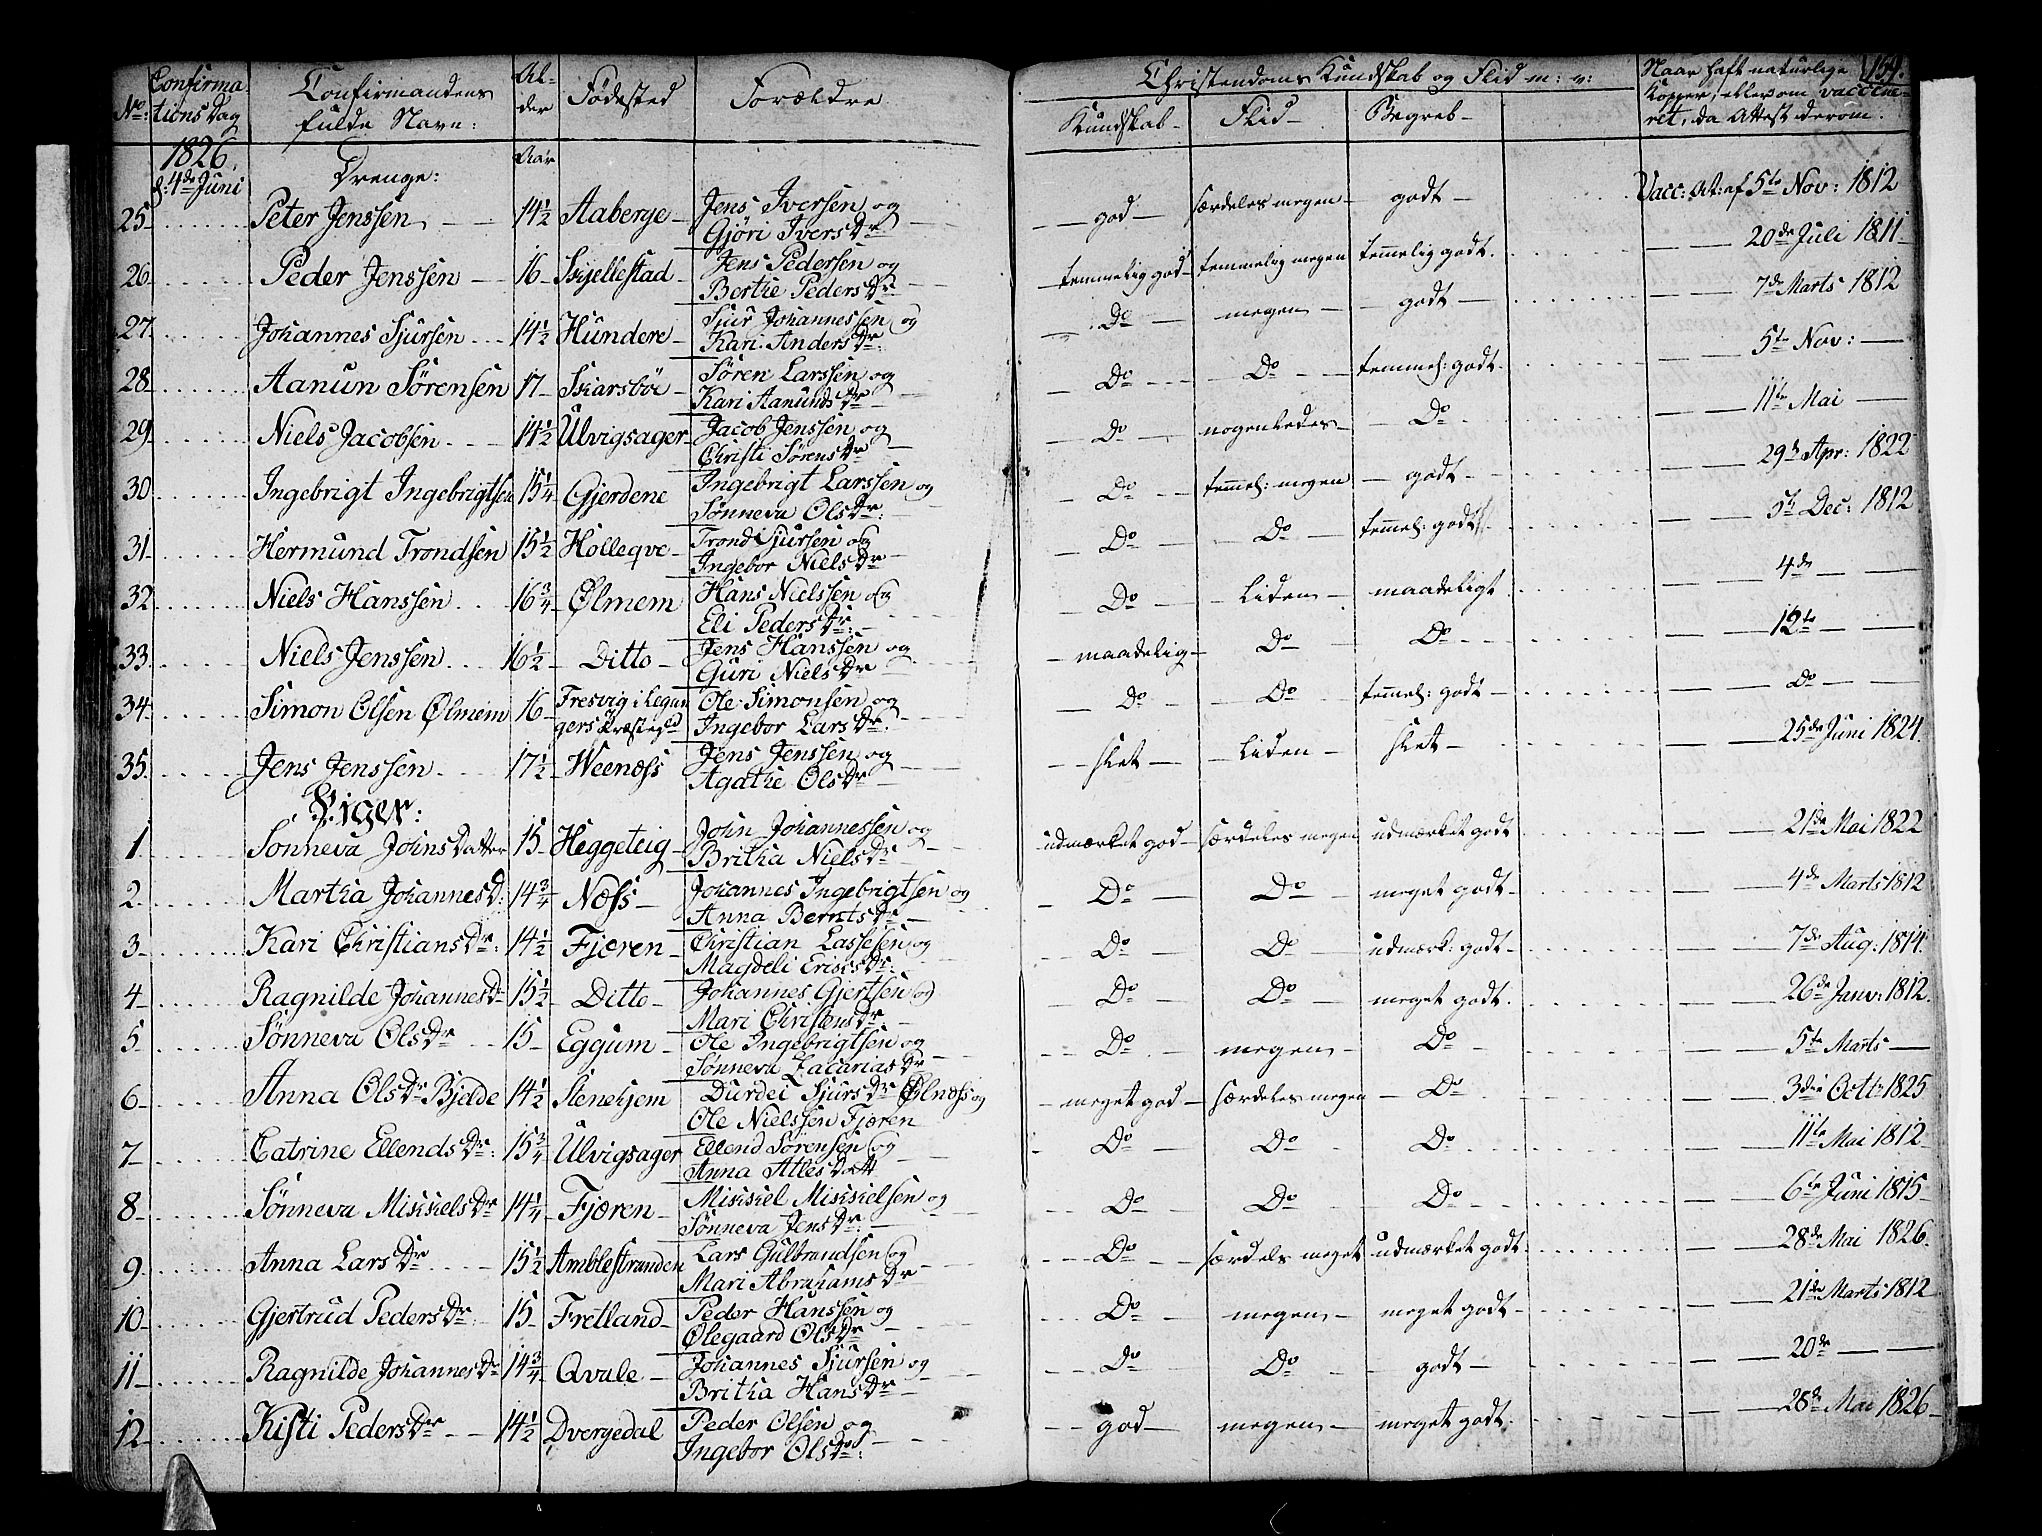 159.
No: Confirmationsdag Confirmandens fulde Navn: Alder Fødested Forældre Christendoms Kundskab og Flid m: v: Naar haft naturlige Kopper, eller om vaccineret, da Attest derom.
Kundskab Flid Begreb
1826. d: 4de Juni Drenge: Aar
25 Peter Jenssen 14½ Aaberge Jens Iversen og Gjøri IversDr god særdeles megen godt Vacc: At: af 5te Nov: 1812
26 Peder Jenssen 16 Skjellestad Jens Pedersen og Berthe PedersDr temmelig god temmelig megen temmelig godt. 20de Juli 1811
27 Johannes Sjursen 14½ Hundere Sjur Johannessen og Kari AndersDr Do megen godt 7de Marts 1812
28 Aanun Sörensen 17 Skarsböe Sören Larssen og Kari AanundsDr Do Do temmel: godt. 5te Nov:
29 Niels Jacobsen 14½ Ulvigsager Jacob Jenssen og Christi SørensDr Do nogenledes Do 11te Mai
30 Ingebrigt Ingebrigtsen 15¼ Gjerdene Ingebrigt Larssen og Sønneva OlsDr: Do temmel: megen godt 29de Apr: 1822
31 Hermund Trondsen 15½ Holleqve Trond Sjursen og Ingebor NielsDr Do Do temmel: godt 5te Dec: 1812
32 Niels Hanssen 16¾ Ølmem Hans Nielssen og Eli PedersDr: Do Liden maadeligt 4de
33 Niels Jenssen 16½ Ditto Jens Hanssen og Guri NielsDr maadelig Do Do 12te
34 Simon Olsen Ølmem 16 Fresvig i Leganger's Præstegd Ole Simonsen og Ingebor LarsDr Do Do temmel: godt Do
35. Jens Jenssen 17½ Weenæss Jens Jenssen og Agathe OlsDr slet Liden slet 25de Juni 1824.
Piger:
1 Sønneva JohnsDatter 15 Heggeteig John Johannessen og Britha NielsDr udmærket god særdeles megen udmærket godt 21de Mai 1822
2. Martha JohannesD: 14¾ Næss Johannes Ingebrigtsen og Anna BerntsDr Do Do meget godt 4de Marts 1812
3. Kari ChristiansDr: 14½ Fjæren Christian Lassesen og Magdeli EricsDr: Do Do udmærk: godt 7de Aug: 1814.
4 Ragnilde JohannesDr 15½ Ditto Johannes Gjertsen og Mari ChristensDr Do Do meget godt. 26de Janv: 1812.
5 Sønneva OlsDr 15 Eggum Ole Ingebrigtsen og Sønneva ZacariasDr Do megen Do 5te Marts
6 Anna OlsDr Bjelde 14½ Stenehjem Durdei SjursDr Ølnæss og Ole Nielssen Fjæren meget god særdeles megen Do 3die Octr: 1825
7 Catrine EllendsDr: 15¾ Ulvigsager Ellend Sørensen og Anna AtlesDatt Do Do Do 11te Mai 1812
8 Sønneva MikkielsDr 14¼ Fjæren Mikkiel Mikkielsen og Sønneva JensDr: Do Do Do 6te Juni 1815
9. Anna LarsDr 15½ Amblestranden Lars Gulbrandsen og Mari AbrahamsDr Do særdeles meget udmærket godt. 28de Mai 1826.
10 Gjertrud PedersDr 15 Fretland Peder Hanssen og Ølegaard OlsDr Do megen meget godt 21de Marts 1812
11 Ragnilde JohannesDr 14¾ Qvale Johannes Sjursen og Britha HansDr Do Do godt 20de
12 Kisti PedersDr 14½ Dvergedal Peder Olsen og Ingebor OlsDr: god megen meget godt. 28de Mai 1826